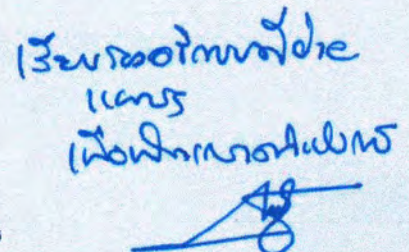 เรียนรองอธิการบดีฝ่าย
แผนฯ
เพื่อพิจารณาดำเนินการ